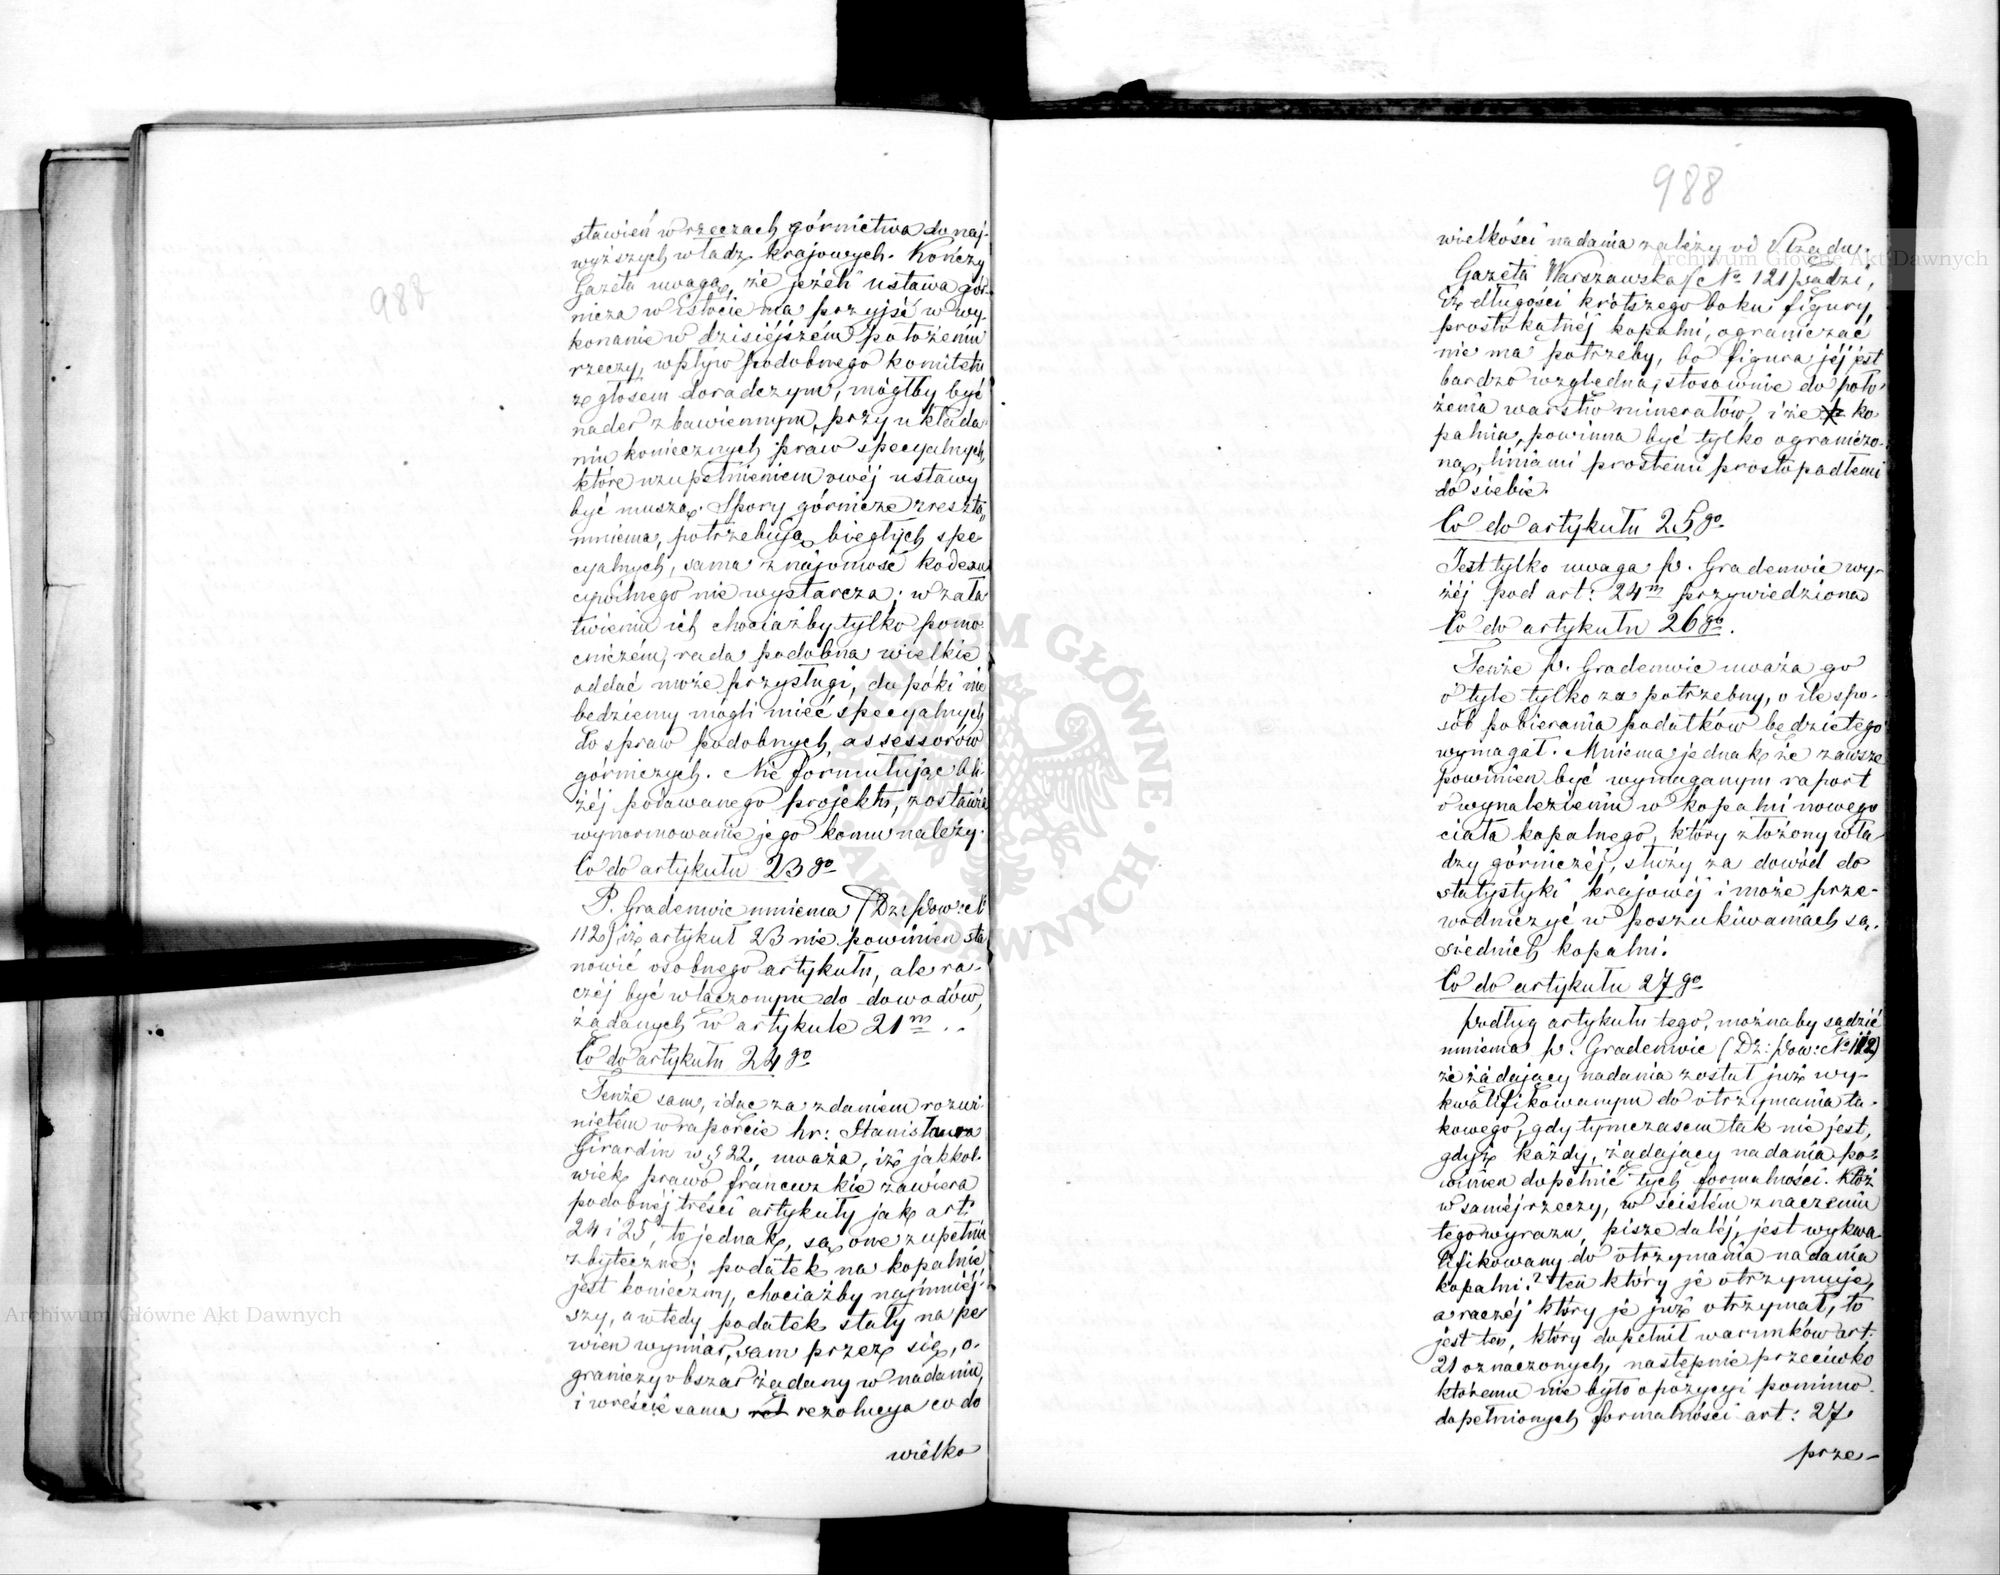 988
stawień w rzeczach górnictwa do naj-
wyższych władz krajowych. Kończy
Gazeta uwagą, że jeżeli ustawa gór-
nicza w istocie ma przyjść w wy-
konanie w dzisiéjszém położeniu
rzeczy, wpływ podobnego komitetu
z głosem doradczym, mógłby być
nader zbawiennym, przy układa-
niu koniecznych praw specyalnych,
które uzupełnieniem owéj ustawy
być muszą. Spory górnicze zresztą,
mniema, potrzebują biegłych spe
cyalnych, sama znajomość kodexu
cywilnego nie wystarcza; w zała
twieniu ich chociażby tylko pomo
cniczém, rada podobna wielkie
oddać może przysługi, dopóki nie
będziemy mogli mieć specyalnych
do spraw podobnych assessorów
górniczych. Nie formułując bli
żéj podawanego projektu, zostawia
wynormowanie jego komu należy.
Co do artykułu 23go
P. Gradenwic mniema (Dz: Pow: N
112) iż artykuł 23 nie powinien sta
nowić osobnego artykułu, ale ra-
czéj być włączonym do dowodów,
żądanych w artykule 21m..
Co do artykułu 24go
Tenże sam, idąc za zdaniem rozwi
niętem w raporcie hr: Stanisława
Girardin w § 22, uważa, iż jakkol-
wiek prawo francuzkie zawiera
podobnéj treści artykuły jak art:
24 i 25, to jednak, są one zupełnie
zbyteczne; podatek na kopalnie,
jest konieczny, chociażby najmniéj-
szy, a wtedy podatek stały na pe
wien wymiar, sam przez się, o-
graniczy obszar żądany w nadaniu,
i wreście sama rel rezolucya co do
wielko
988
wielkości nadania zależy od Rządu.
Gazeta Warszawska (No 121) sądzi,
iż długości krótszego boku figury,
prostokątnéj kopalni, ograniczać
nie ma potrzeby, bo figura jéj jest
bardzo względna, stosownie do poło-
żenia warstw minerałów, i że ko
palnia, powinna być tylko ograniczo-
ną, liniami prostemi prostopadłemi
do siebie.
Co do artykułu 25go
Jest tylko uwaga p. Gradenwic wy-
żéj pod art: 24m przywiedziona
Co do artykułu 26go.
Tenże p. Gradenwic uważa go
o tyle tylko za potrzebny, o ile spo-
sób pobierania podatków będzie tego
wymagał. Mniema jednak że zawsze
powinien być wymaganym raport
o wynalezieniu w kopalni nowego
ciała kopalnego, który złożony wła
dzy górniczéj, służy za dowód do
statystyki krajowéj i może prze-
wodniczyć w poszukiwaniach są-
siednich kopalni.
Co do artykułu 27go
Podług artykułu tego, możnaby sądzić
mniema p. Gradenwic (Dz: Pow: No 112)
że żądający nadania został już wy-
kwalifikowanym do otrzymania ta-
kowego, gdy tymczasem tak nie jest,
gdyż każdy, żądający nadania po-
winien dopełnić tych formalności. Któż
w saméj rzeczy, w ścisłém znaczeniu
tego wyrazu, pisze daléj, jest wykwa-
lifikowany do otrzymania nadania
kopalni? ten który je otrzymuje,
a raczéj który je już otrzymał, to
jest ten, który dopełnił warunków art:
21 oznaczonych, następnie przeciwko
któremu nie było opozycyi pomimo
dopełnionych formalności art: 27
prze-
Archiwum Główne Akt Dawnych
Archiwum Główne Akt Dawnych
ARCHIWUM GŁÓWNE AKT DAWNYCH